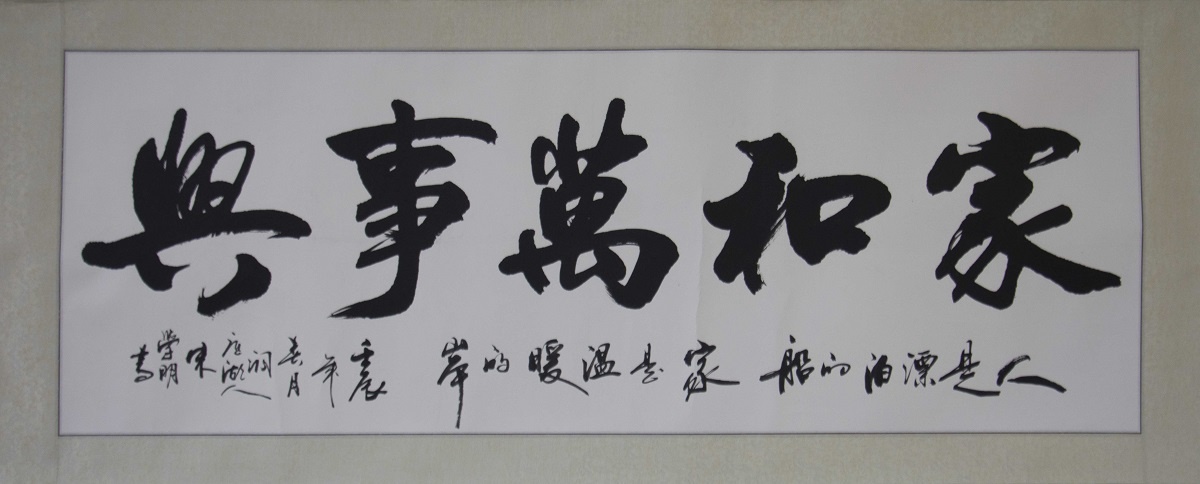 家和萬事興
人是漂泊的船 家是溫暖的岸
壬辰年春月洞庭湖人朱學明書